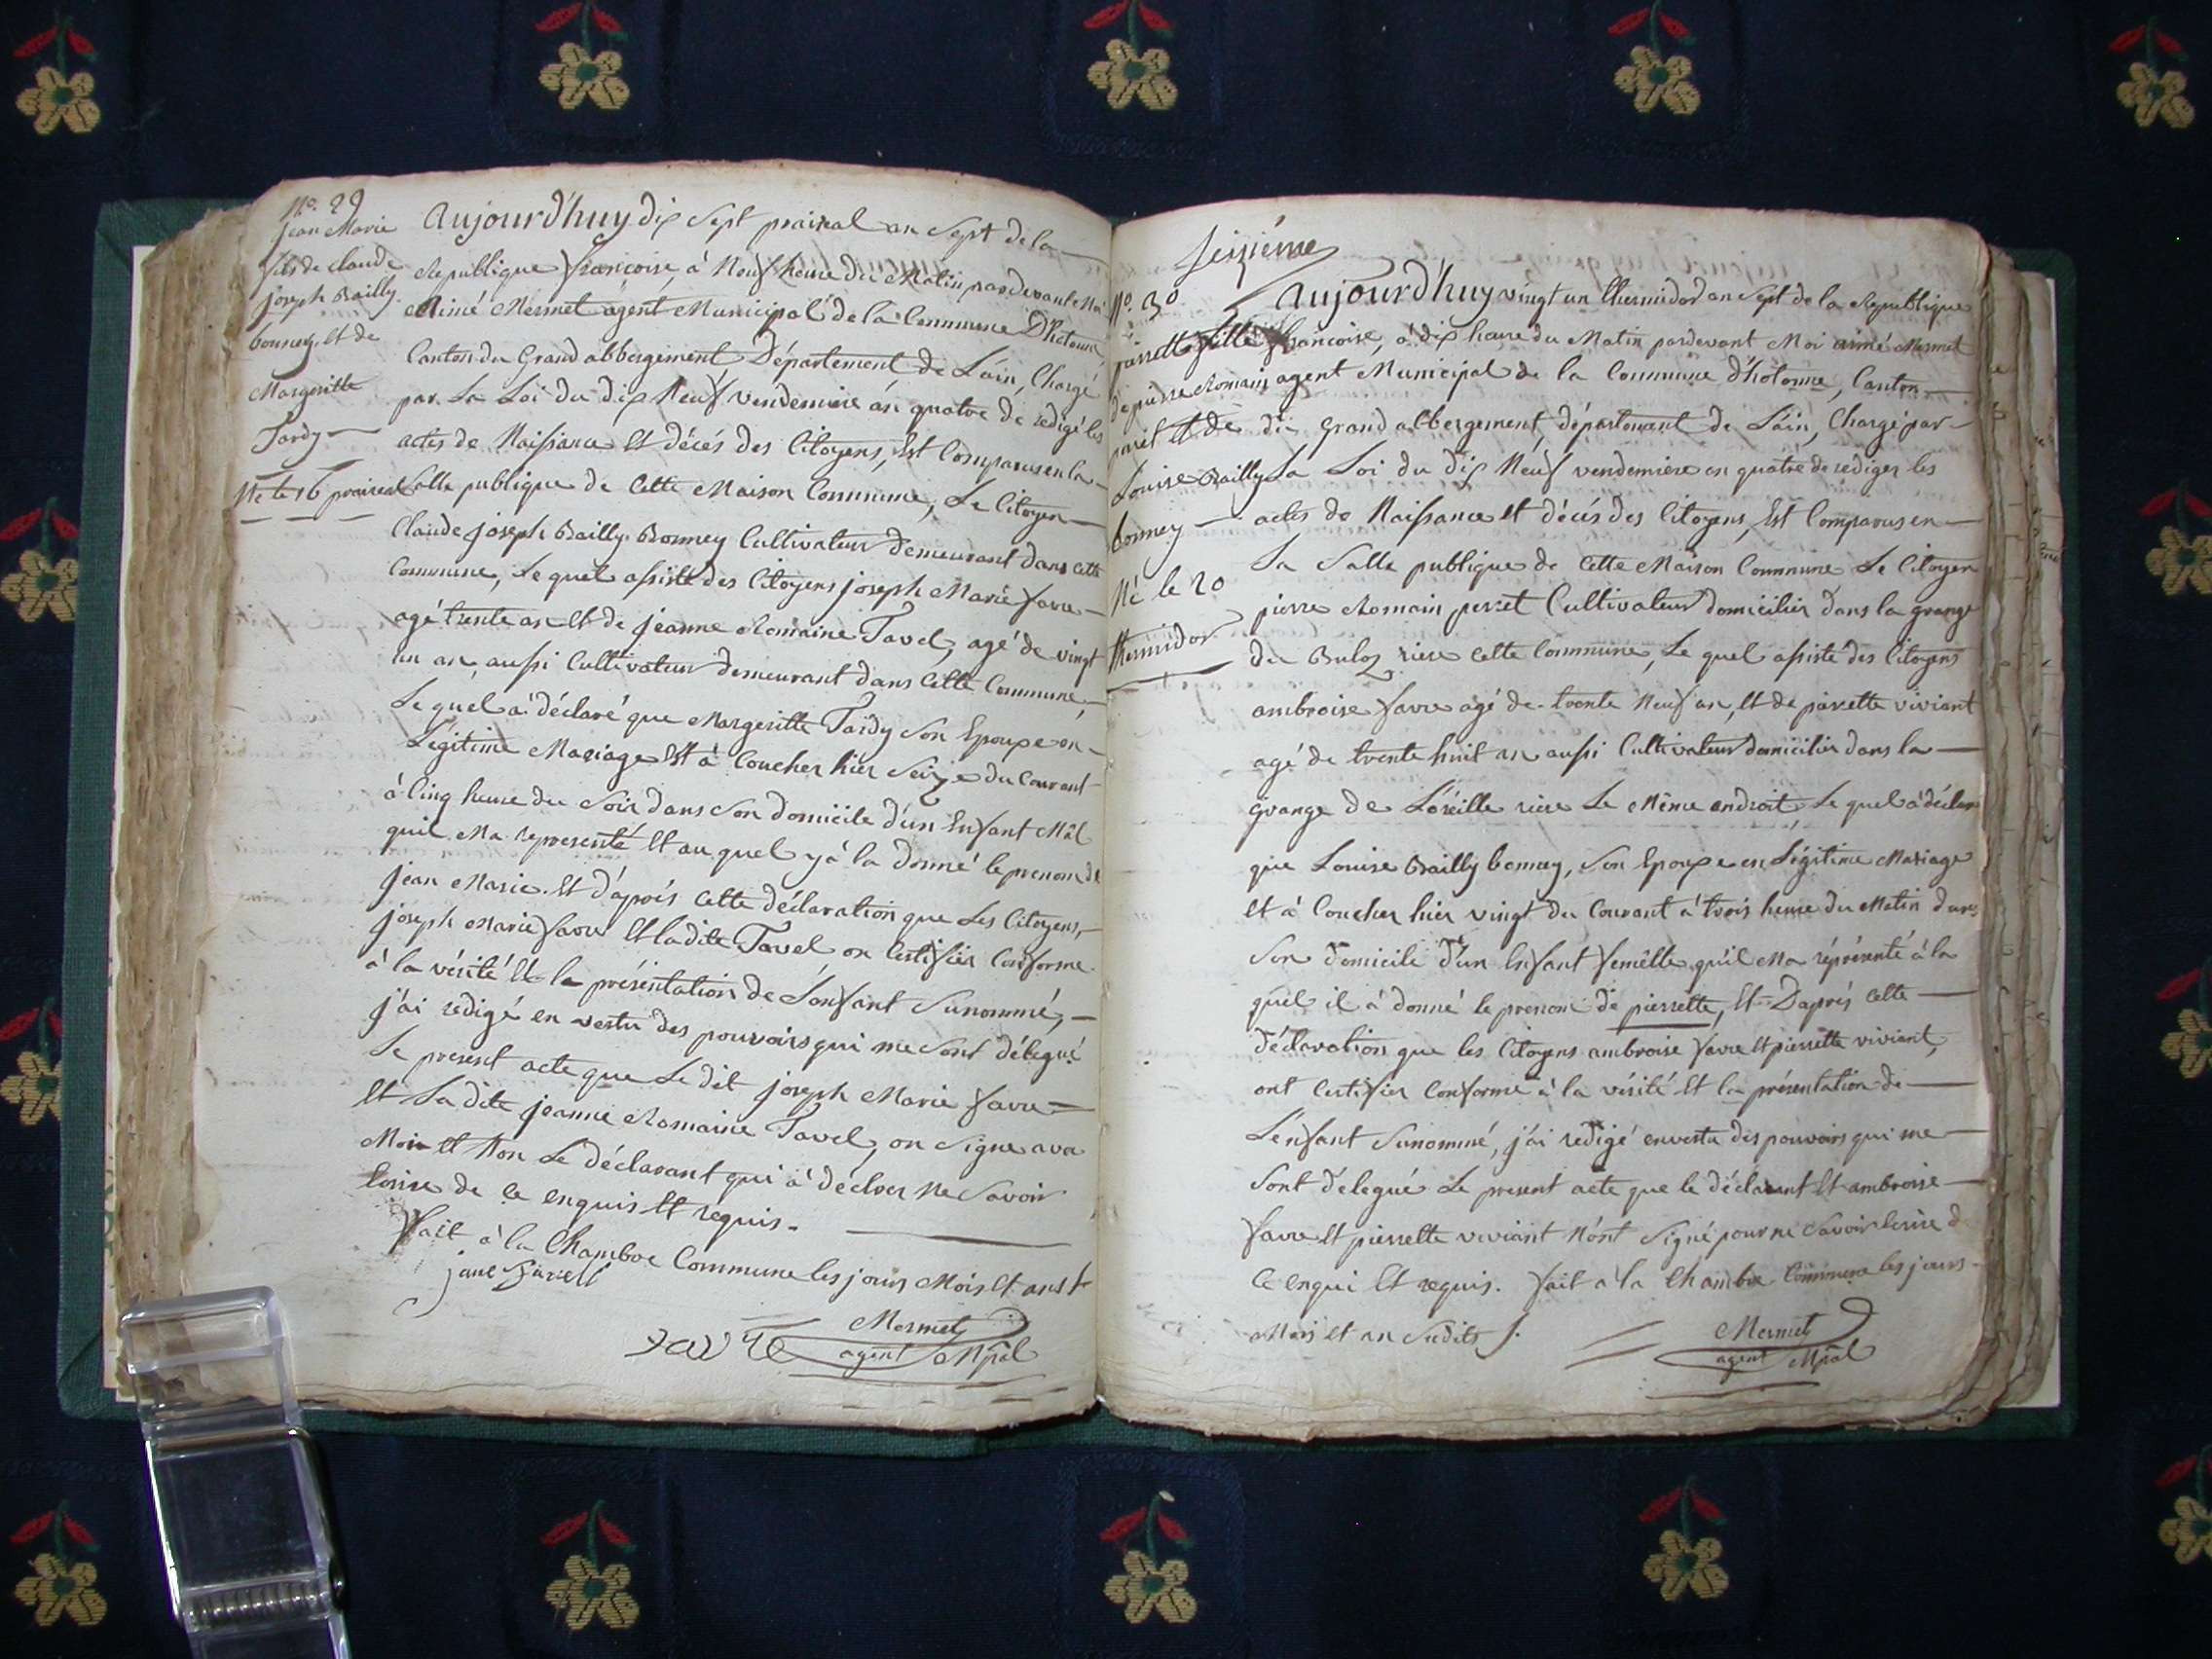 N.º 29
jean Marie
fils de claude
joseph Bailly
bonney, et de
Margeritte
Tardy —
Né le 16 prairial
aujourd'huy dix Sept prairal an Sept de la —
Republique françoise, à Neuf heure du Matin, pardevant Moi
Aimé Mermet agent Municipal de la Commune D'hotonne
Canton du Grand abbergement, Département de Lain, Chargé
par La Loi du dix Neuf vendemiere an quatre de redigé les
actes de Naissance Et décés des Citoyens, Est Comparus en la —
Salle publique de Cette Maison Commune, Le Citoyen —
Claude joseph Bailly Bonney Cultivateur demeurant dans cette
Commune, Le quel assisté des Citoyens joseph Marie favre —
agé trente an Et de jeanne Romaine Tavel, agé de vingt
un an, aussi Cultivateur demeurant dans Cette Commune, —
Le quel à déclaré que Margeritte Tardy Son Epouse en —
Légitime Mariage Et à Coucher hier Seize du Courant
à Cinq heure du Soir dans Son domicile d'un Enfant Mâl
quil Ma representé Et au quel y à la donné le prenom de
jean Marie. Et d'aprés Cette déclaration que Les Citoyens, —
joseph Marie favre Et ladite Tavel on Certifier Conforme
à la vérité Et la présentation de L'enfant Sunommé, —
j'ai redigé en vertu des pouvoirs qui me Sont délegué
Le present acte que Le dit joseph Marie favre —
Et La dite jeanne Romaine Tavel, on Signe avec
Moi Et Non Le déclarant qui à déclaer Ne Savoir
Ecrire de Ce enquis Et requis. —
fait à la Chambre Commune les jours Mois Et ans
favre
Mermet
agent Mpâl
Seizième
N.º 30
pierrette fille
de pierre Romain
perret Et de
Louise Bailly
bonney —
Né le 20
thermidor
aujourd'huy vingt un thermidor an Sept de la Republique
francoise, à dix heure du Matin pardevant Moi aimé Mermet
agent Municipal de la Commune d'hotonne, Canton —
du grand albergement, département de Lain, Chargé par —
La Loi du dix Neuf vendemiere en quatre de rediger les
actes de Naissance Et décés des Citoyens, Est Comparus en —
La Salle publique de Cette Maison Commune Le Citoyen
pierre Romain perret Cultivateur domicilier dans la grange
du Buloz riere cette Commune, Le quel assisté des Citoyens
ambroise favre agé de trente Neuf an, Et de pierrette viviant
agé de trente huit an aussi Cultivateur domicilier dans la —
grange de Loreille riere Le Même androit, Le quel à déclare
que Louise Bailly bonney, Son Epouse en Légitime Mariage
Et à Coucher hier vingt du Courant à trois heure du Matin dans
Son domicile d'un Enfant femêlle, qu'il Ma réprésenté à la
quel il à donné le prenom de pierrette, Et D'aprés Cette —
déclaration que les Citoyens ambroise favre Et pierrette viviant,
ont Certifier Conforme à la vérité Et la présentation de —
L'enfant Sunommé, j'ai redigé en vertu des pouvoirs qui me —
Sont délegué Le present acte que le déclarant Et ambroise —
favre Et pierrette viviant N'ont Signé pour ne Savoir Ecrire de
Ce enqui Et requis. fait à la Chambre Commune les jours —
Mois et an Sudits
Mermet
agent Mpâl